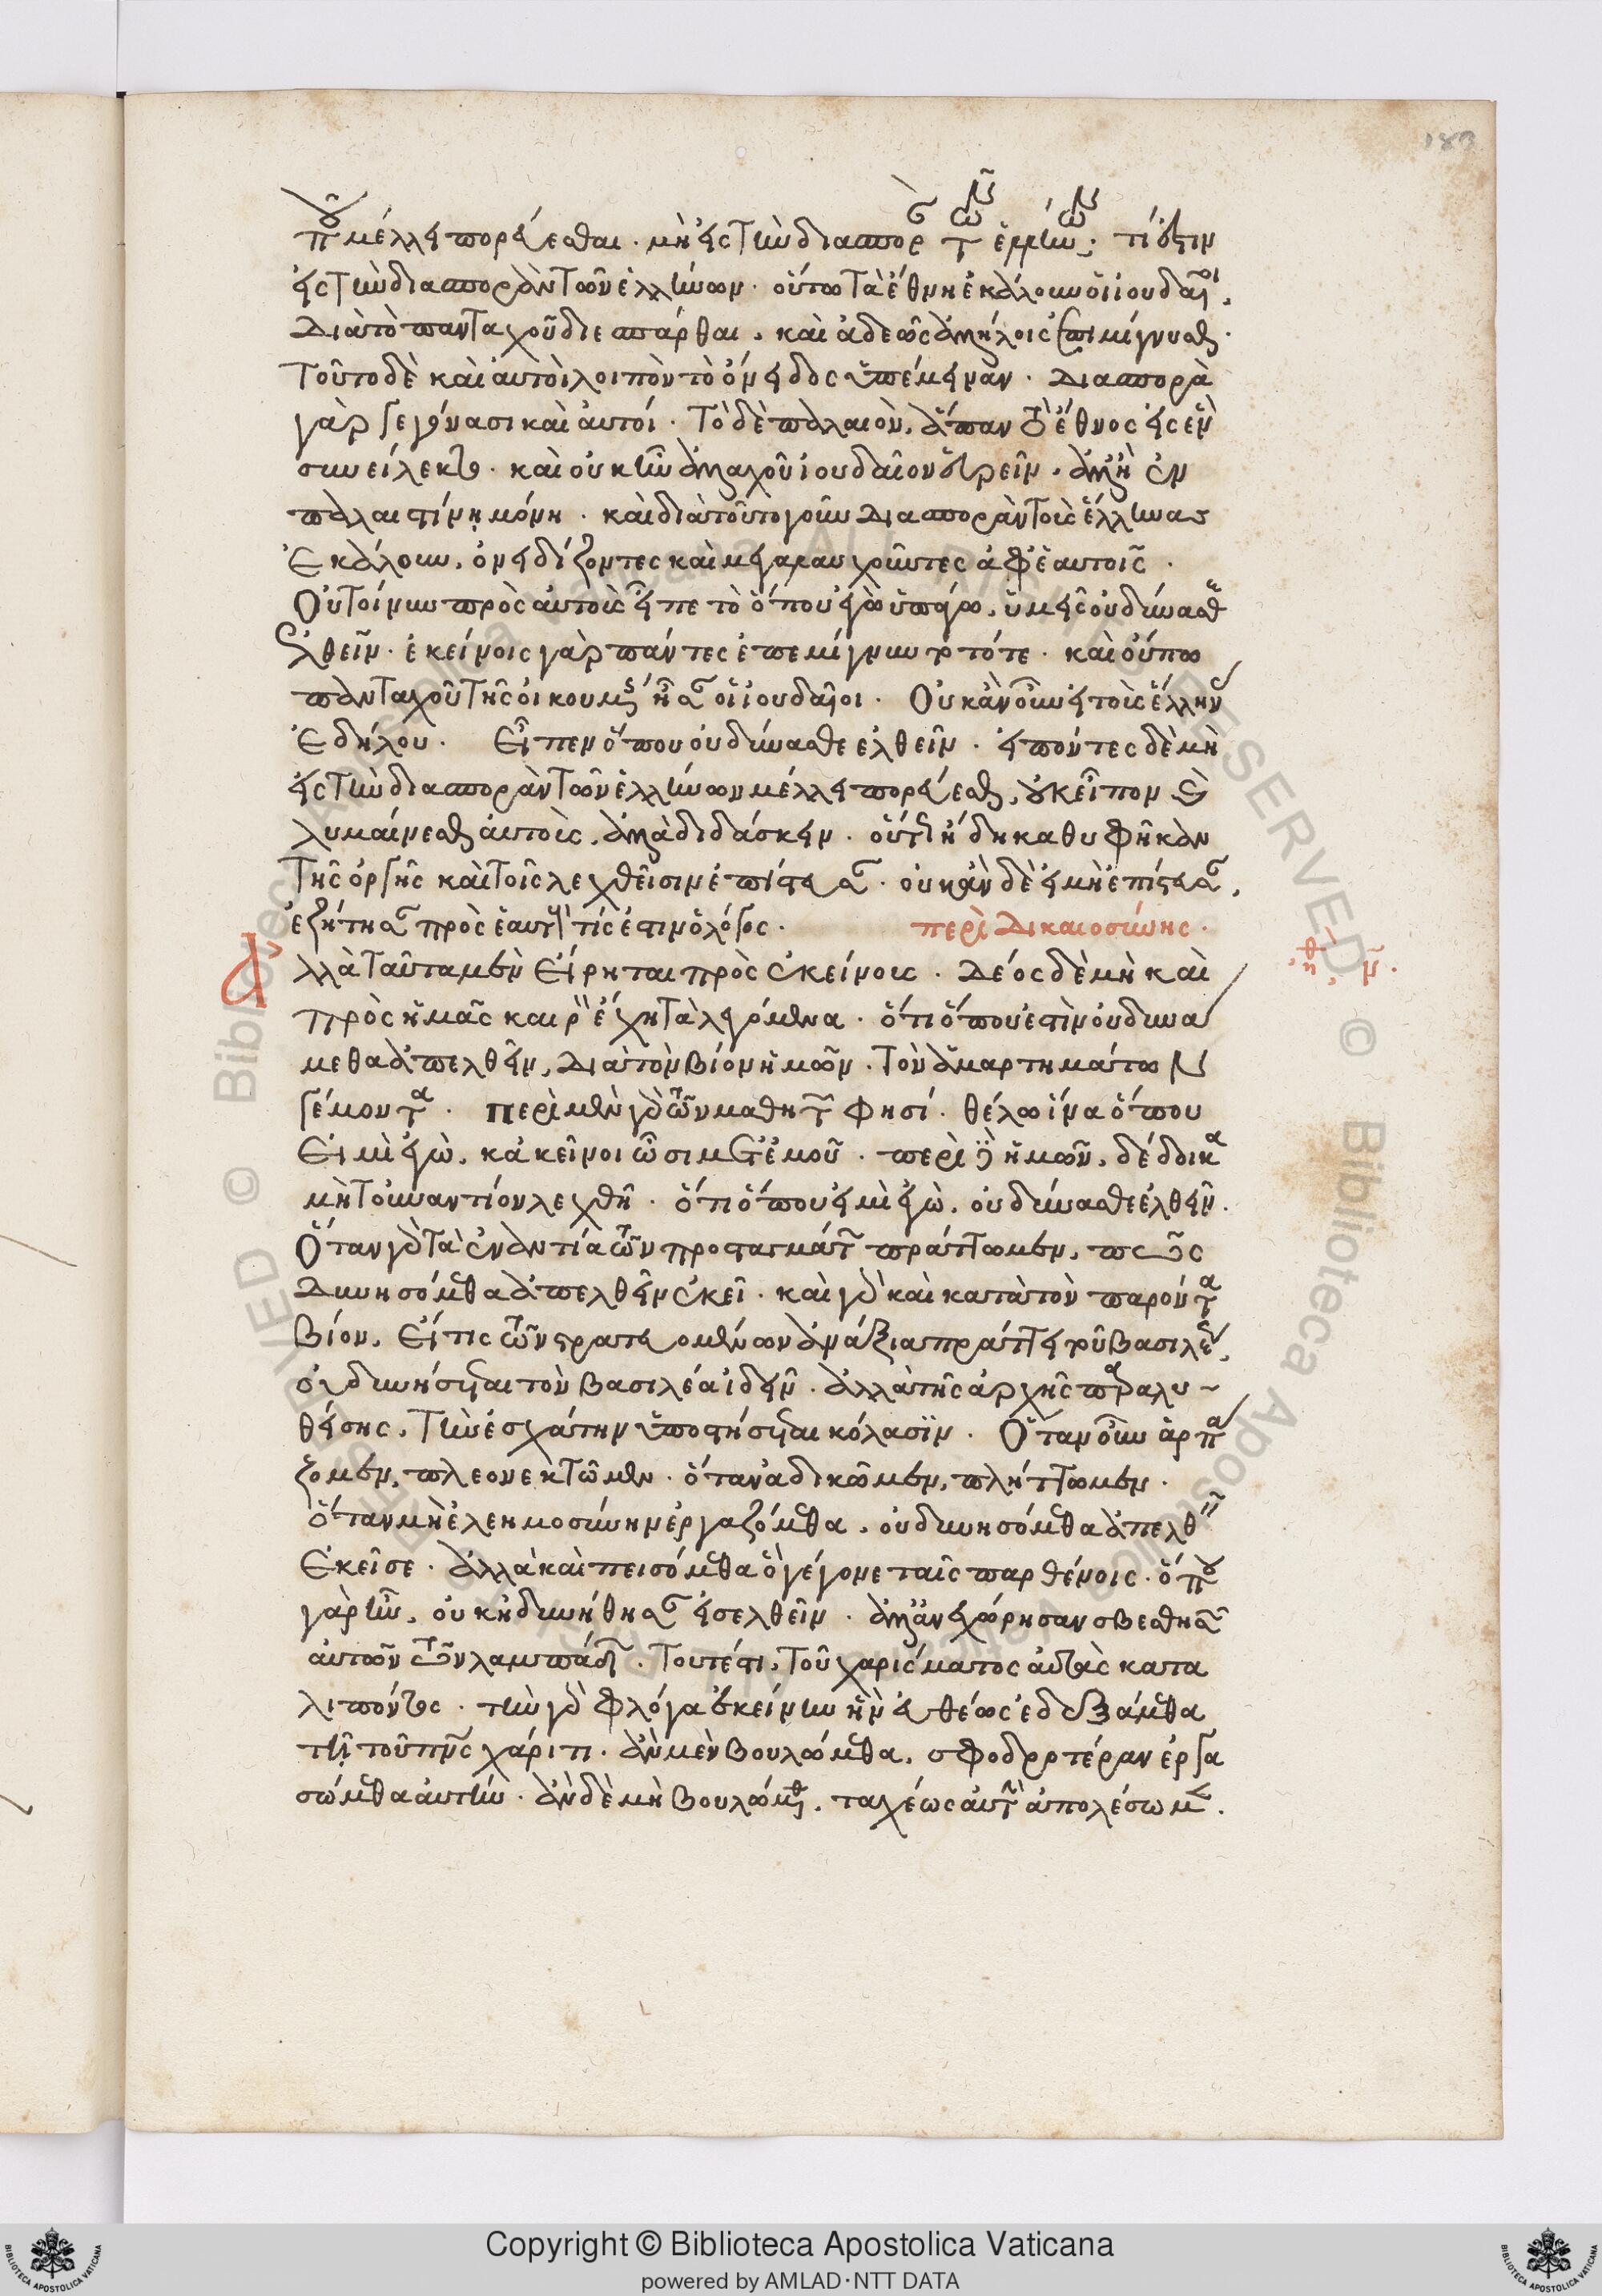 183
ποῦ μέλλει πορεύεσθαι. μὴ εἰς τὴν διασπορὰν τῶν ἑλλήνων; τί ἐστιν
εἰς τὴν διασπορὰν τῶν ἑλλήνων. οὕτω τὰ ἔθνη ἐκάλουν οἱ ἰουδαῖοι,
Διὰ τὸ πανταχοῦ διεσπάρθαι. καὶ ἀδεῶς ἀλλήλοις ἐπιμίγνυσθαι.
Τοῦτο δὲ καὶ αὐτοὶ λοιπὸν τὸ ὄνειδος ὑπέμειναν. Διασπορὰ
γὰρ γεγόνασι καὶ αὐτοί. Τὸ δὲ παλαιὸν, ἅπαν τὸ ἔθνος εἰς ἓν
συνείλεκτο. καὶ οὐκ ἦν ἀλλαχοῦ ἰουδαῖον εὑρεῖν. ἀλλ' ἢ ἐν
παλαιστίνῃ μόνῃ. καὶ διὰ τοῦτο γοῦν Διασπορὰν τοὺς ἕλληνας
Ἐκάλουν, ὀνειδίζοντες καὶ μεγαλαυχοῦντες ἐφ' ἑαυτοῖς.
Οὐ τοίνυν πρὸς αὐτοὺς εἶπε τὸ ὅπου ἐγὼ ὑπάγω, ὑμεῖς οὐ δύνασθε
ἐλθεῖν. ἐκείνοις γὰρ πάντες ἐπεμίγνυντο τότε. καὶ οὔπω
πανταχοῦ τῆς οἰκουμένης ἦσαν οἱ ἰουδαῖοι. Οὐκ ἂν οὖν εἰ τοὺς ἕλληνας
Ἐδήλου. Εἶπεν ὅπου οὐ δύνασθε ἐλθεῖν. εἰπόντες δὲ μὴ
εἰς τὴν διασπορὰν τῶν ἑλλήνων μέλλει πορεύεσθαι, οὐκ εἶπον καὶ
λυμαίνεσθαι αὐτοὺς, ἀλλὰ διδάσκειν. οὕτως ἤδη καθυφῆκαν
Τῆς ὀργῆς καὶ τοῖς λεχθεῖσιν ἐπίστευσαν. οὐκ ἂν δὲ εἰ μὴ ἐπίστευσαν,
ἐζήτησαν πρὸς ἑαυτοὺς τίς ἐστιν ὁ λόγος. περὶ Δικαιοσύνης.
Ἀλλὰ ταῦτα μὲν Εἴρηται πρὸς ἐκείνους. Δέος δὲ μὴ καὶ
πρὸς ἡμᾶς καιρὸν ἔχῃ τὰ λεγόμενα. ὅτι ὅπου ἐστὶν οὐ δυνά
μεθα ἀπελθεῖν, Διὰ τὸν βίον ἡμῶν. Τὸν ἁμαρτημάτων
γέμοντα. Περὶ μὲν γὰρ τῶν μαθητῶν φησί. θέλω ἵνα ὅπου
Εἰμὶ ἐγὼ, κἀκεῖνοι ὦσι μετ' ἐμοῦ. περὶ δὲ ἡμῶν, δέδοικα
μὴ τοὐναντίον λεχθῇ. ὅτι ὅπου εἰμὶ ἐγὼ, οὐ δύνασθε ἐλθεῖν.
Ὅταν γὰρ τὰ ἐναντία τῶν προσταγμάτων πράττωμεν, πῶς
Δυνησόμεθα ἀπελθεῖν ἐκεῖ. καὶ γὰρ καὶ κατὰ τὸν παρόντα
βίον, Εἴ τις τῶν στρατευομένων ἀνάξια πράττει τοῦ βασιλέως,
οὐ δυνήσεται τὸν βασιλέα ἰδεῖν. ἀλλὰ τῆς ἀρχῆς παραλυ
θεὶς, τὴν ἐσχάτην ὑποστήσεται κόλασιν. Ὅταν οὖν ἁρπά
ζωμεν, πλεονεκτῶμεν. ὅταν ἀδικῶμεν, πλήττωμεν.
ὅταν μὴ ἐλεημοσύνην ἐργαζόμεθα, οὐ δυνησόμεθα ἀπελθεῖν
Ἐκεῖσε. ἀλλὰ καὶ πεισόμεθα ὃ γέγονε ταῖς παρθένοις. ὅπου
γὰρ ἦν, οὐκ ἠδυνήθησαν εἰσελθεῖν. ἀλλ' ἀνεχώρησαν σβεσθησῶν
αὐτῶν τῶν λαμπάδων. Τουτέστι, τοῦ χαρίσματος αὐτὰς κατα
λιπόντος. τὴν γὰρ φλόγα ἐκείνην ἣν εὐθέως ἐδεξάμεθα
τῇ τοῦ πνς χάριτι. ἂν μὲν βουλώμεθα, σφοδροτέραν ἐργα
σώμεθα αὐτήν. ἂν δὲ μὴ βουλώμεθα, ταχέως αὐτὴν ἀπολέσωμεν.
Copyright © Biblioteca Apostolica Vaticana
powered by AMLAD·NTT DATA